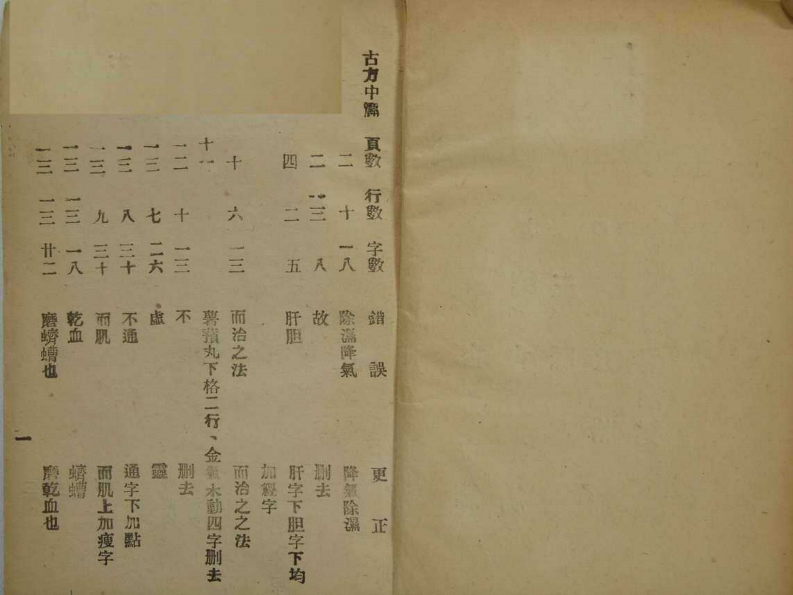 古方中篇 頁數 行數 字數 錯誤 更正
二 十 一八 除濕降氣 降氣除濕
二 一三 八 故 删去
四 二 五 肝胆 肝字下胆字下均
加經字
十 六 一三 而治之法 而治之之法
十一 薯蕷丸下格二行、金氣水動四字删去
一二 十 一三 不 删去
一三 七 二六 虛 靈
一三 八 三十 不通 通字下加點
一三 九 三十 而肌 而肌上加瘦字
一三 一三 一八 乾血 蠐螬
一三 一三 廿二 磨蠐螬也 磨乾血也
一